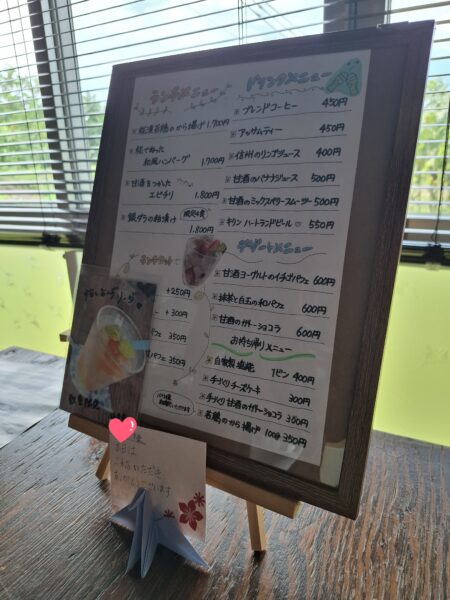 ランチメニュー
※塩漬若鶏のから揚げ 1,700円
和風ハンバーグ 1,700円
※甘酒をつかった
エビチリ 1,800円
※銀ダラの粕漬け
1,800円
ランチセット
+250円
+300円
350円
350円
ドリンクメニュー
※ブレンドコーヒー 450円
※アッサムティー 450円
※信州のリンゴジュース 400円
※甘酒のバナナジュース 500円
※甘酒のミックスベリースムージー 500円
※キリン ハートランドビール 550円
デザートメニュー
※甘酒ヨーグルトのイチゴパフェ 600円
※抹茶と白玉の和パフェ 600円
※甘酒のガトーショコラ 600円
お持ち帰りメニュー
※自家製塩糀 1ビン 400円
※手づくりチーズケーキ 300円
※手づくり甘酒のガトーショコラ 300円
※若鶏のから揚げ 100g 350円
本日は
ご来店いただき、
ありがとうございます